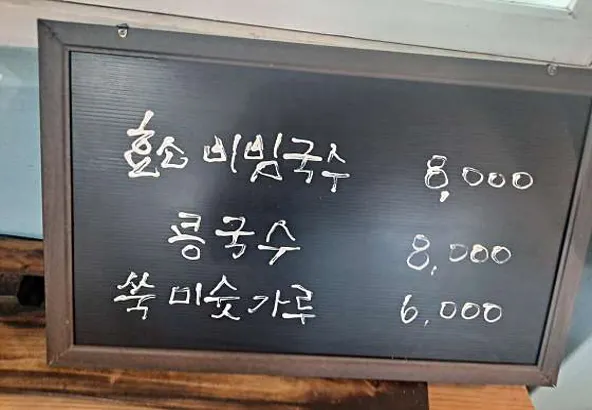 효소 비빔국수 8,000
콩국수 8,000
쑥 미숫가루 6,000